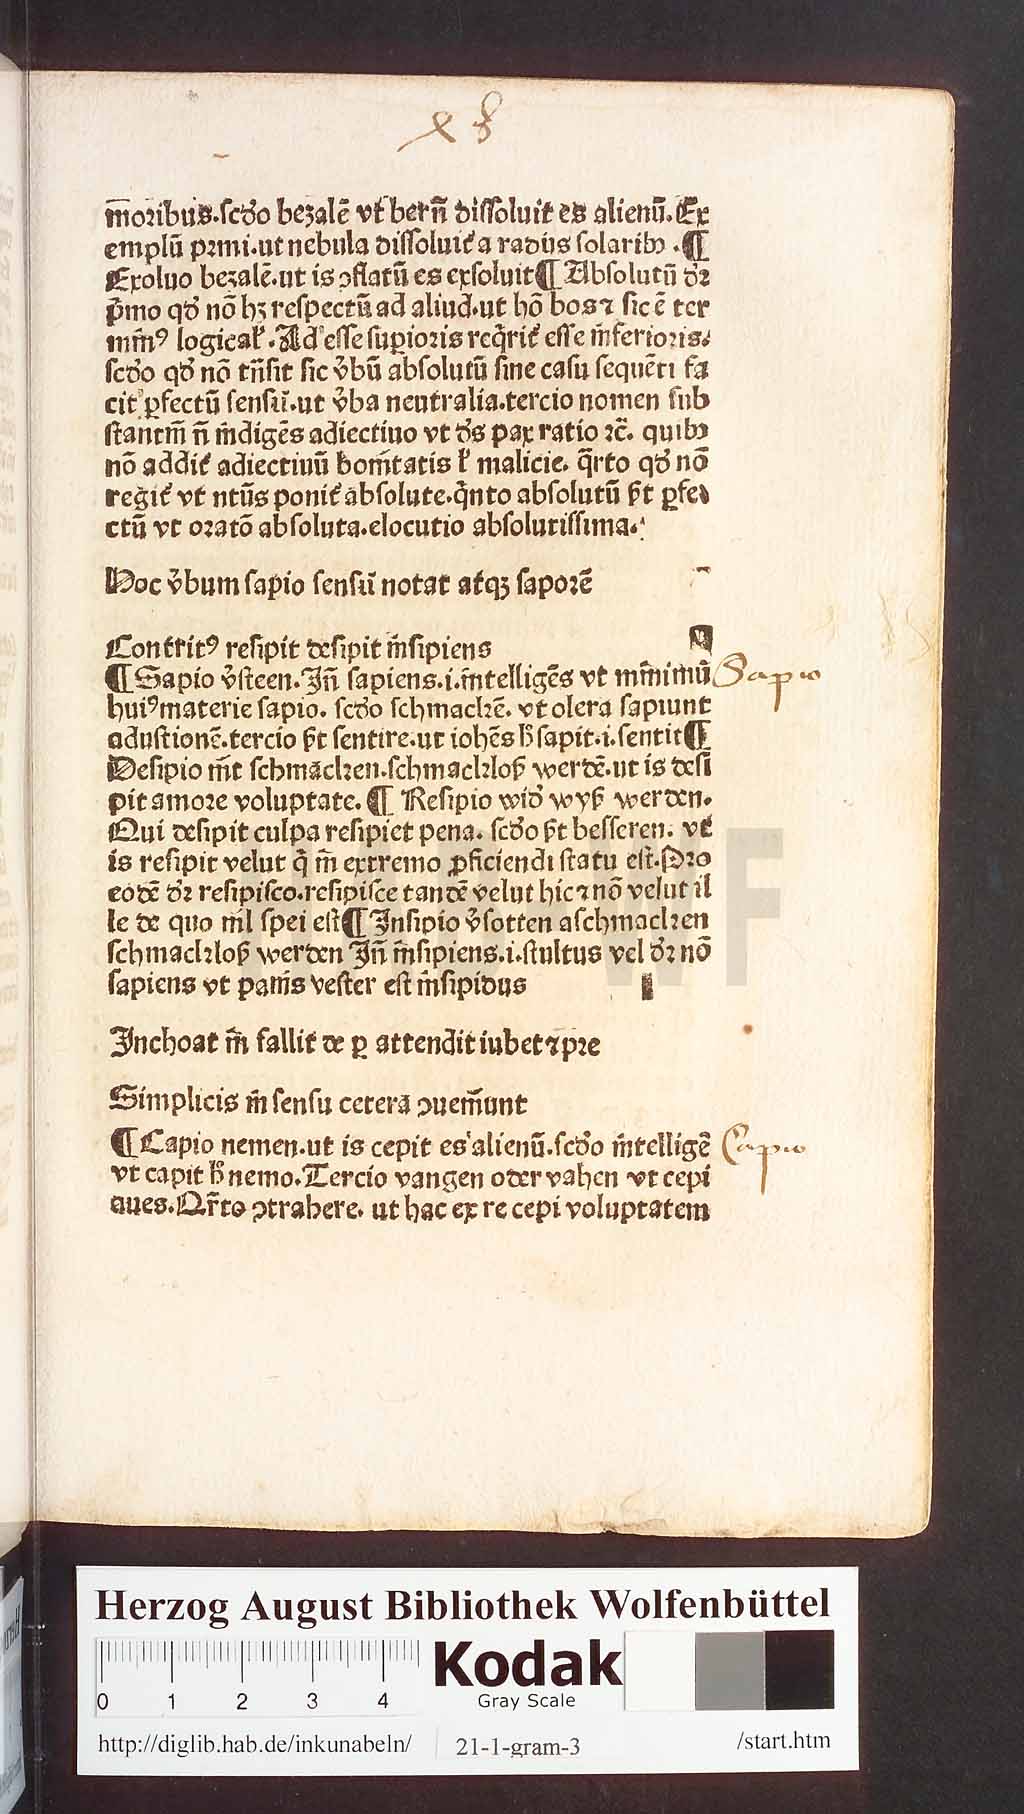 x 8
m̅oribus.scd̕o bezalē vt̕ ber̅n̅ dissoluit es alienū. Ex
emplū prmi.ut nebula dissoluit̕ a radiis solaribꝫ .¶
Exoluo bezalē.ut is ꝯflatū es exsoluit¶ Absolutū dr̕
p̄mo qd̕ nō hꝫ respectū ad aliud.ut hō bos⁊ sic ē ter
min̅ꝰ logical̕. Ad esse supioris req̄rit̕ esse inferioris.
scd̕o qd̕ nō tn̅sit sic v̕bū absolutū sine casu sequēti fa
cit ꝑfectū sensū.ut v̕ba neutralia.tercio nomen sub
stantiū n̄ indigēs adiectiuo vt ds̕ pax ratio ⁊c̄. quibꝫ
nō addit̕ adiectiuū bonitatis l̕ malicie. q̄rto qd̕ nō
regit̕ vt ntūs ponit̕ absolute.q̄nto absolutū ꝑt ꝑfe
ctū vt oratō absoluta.elocutio absolutissima.
Hoc v̕bum sapio sensū notat atqꝫ saporē
Contritꝰ resipit desipit insipiens
¶ Sapio v̕steen. In̄ sapiens.i.intelligēs vt minimū Sapio
huiꝰ materie sapio. scd̕o schmackē. vt olera sapiunt
adustionē.tercio ꝑt sentire.ut iohēs h̕ sapit.i.sentit¶
Desipio nit schmacken.schmackloß werdē.ut is desi
pit amore voluptate. ¶ Resipio wid̕ wyß werden.
Qui desipit culpa resipiet pena. scd̕o ꝑt besseren. vt̕
is resipit velut q̄ in extremo ꝓficiendi statu est. Pro
eodē dr̕ resipisco.resipisce tandē velut hic⁊nō velut il
le de quo nil spei est¶ Insipio v̕sotten aschmacken
schmackloß werden In̄ insipiens.i.stultus vel dr̕ nō
sapiens vt panis vester est insipidus
Inchoat in fallit de ꝑ attendit iubet⁊pre
Simplicis in sensu cetera ꝯueniunt
¶ Capio nemen.ut is cepit es alienū.scd̕o intelligē Capio
vt capit h̕ nemo. Tercio vangen oder vahen vt cepi
aues.Qr̄to ꝯtrahere. ut hac ex re cepi voluptatem
HAB WF
Herzog August Bibliothek Wolfenbüttel
0 1 2 3 4
Kodak
Gray Scale
http://diglib.hab.de/inkunabeln/ 21-1-gram-3 /start.htm